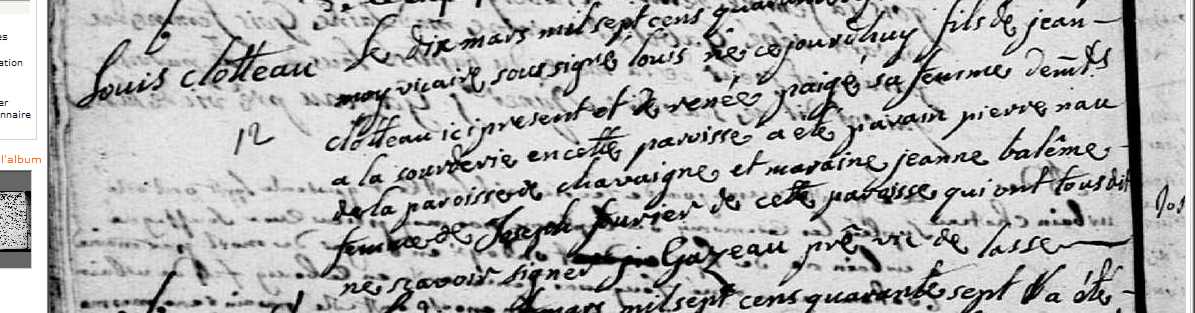 Louis clotteau
12
Le dix mars mil sept cens
moy vicaire soussigné louis né ce jourdhuy fils de jean
clotteau ici present et de renée paigé sa femme demts
a la courderie en cette paroisse a eté parain pierre nau
de la paroisse de chavaigne et maraine jeanne balême
femme de Joseph furier de cette paroisse qui ont tous dit
ne scavoir signer Gazeau prê vic de lasse
mars mil sept cens quarante sept a été
l'album